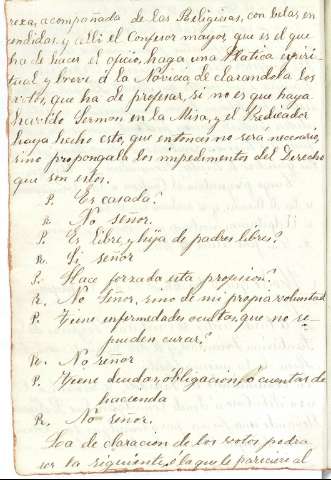 reza, acompañada de las Religiosas, con belas en
cendidas, y alli el Confesor mayor que es el que
ha de hacer el oficio, haga una Platica espiri-
tual y breve á la Novicia, declarandola los
votos, que ha de profesar, si no es que haya
havido Sermon en la Misa, y el Predicador
haya hecho esto, que entonces no será necesario,
sino propongala los impedimentos del Derecho
que son estos.
P. Es casada?
R. No señor.
P. Es libre, y hija de padres libres?
R. Si señor
P. Hace forzada esta profesion?
R. No Señor, sino de mi propia voluntad
P. Tiene enfermedades ocultas, que no se
pueden curar?
R. No señor
P. Tiene deudas, obligacion, ó cuentas de
hacienda
R. No señor.
La declaracion de los votos podra
ser la siguiente, ó la que le pareciere al